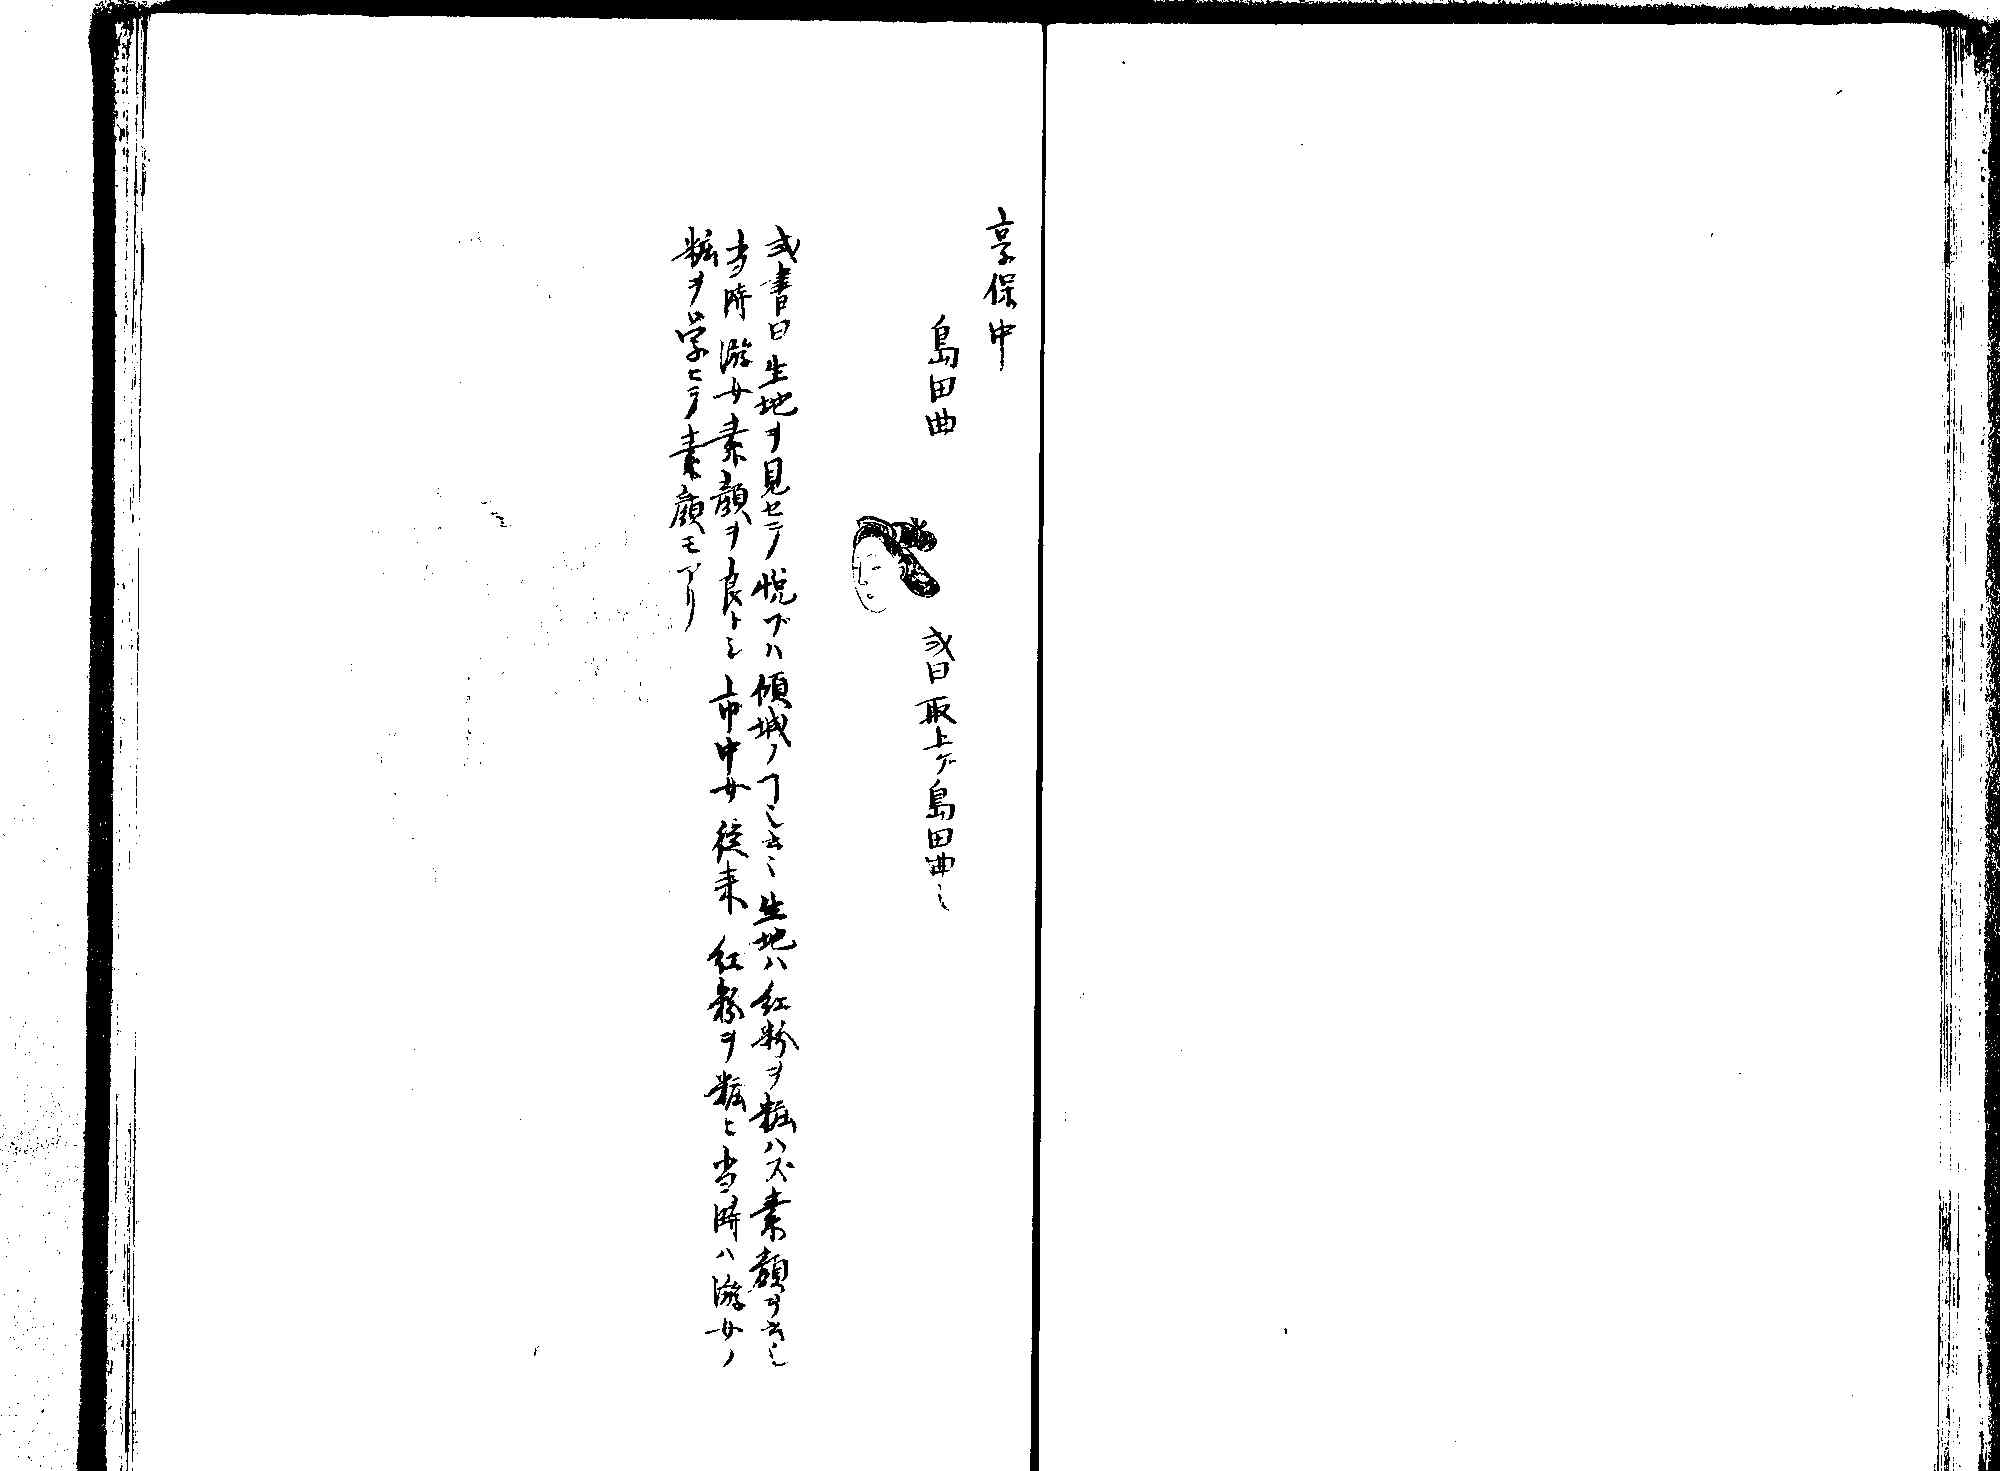 享保中
島田曲
或曰取上ゲ島田曲也
或書曰生地ヲ見セテ悦ブハ傾城ノヿ也云々生地ハ紅粉ヲ粧ハズ素顔ヲ云也
当時游女素顔ヲ良トシ市中女従来紅粉ヲ粧ヒ当時ハ游女ノ
粧ヲ学ヒテ素顔モアリ